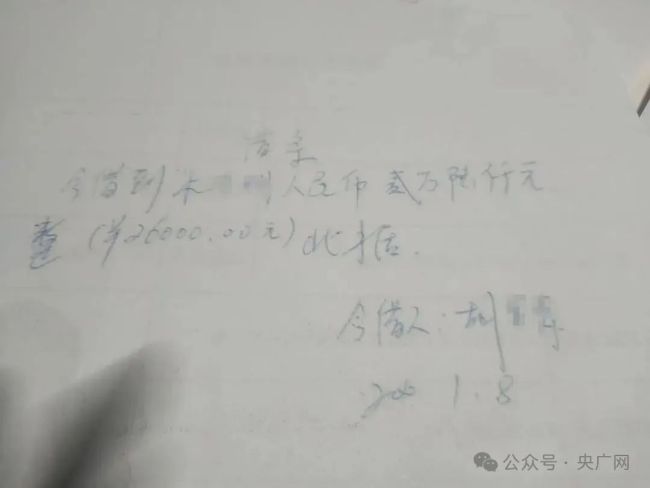 借条
今借到 人民币 贰万陆仟元
整 (¥26000.00元) 此据.
今借人: 胡
1.8
公众号·央广网